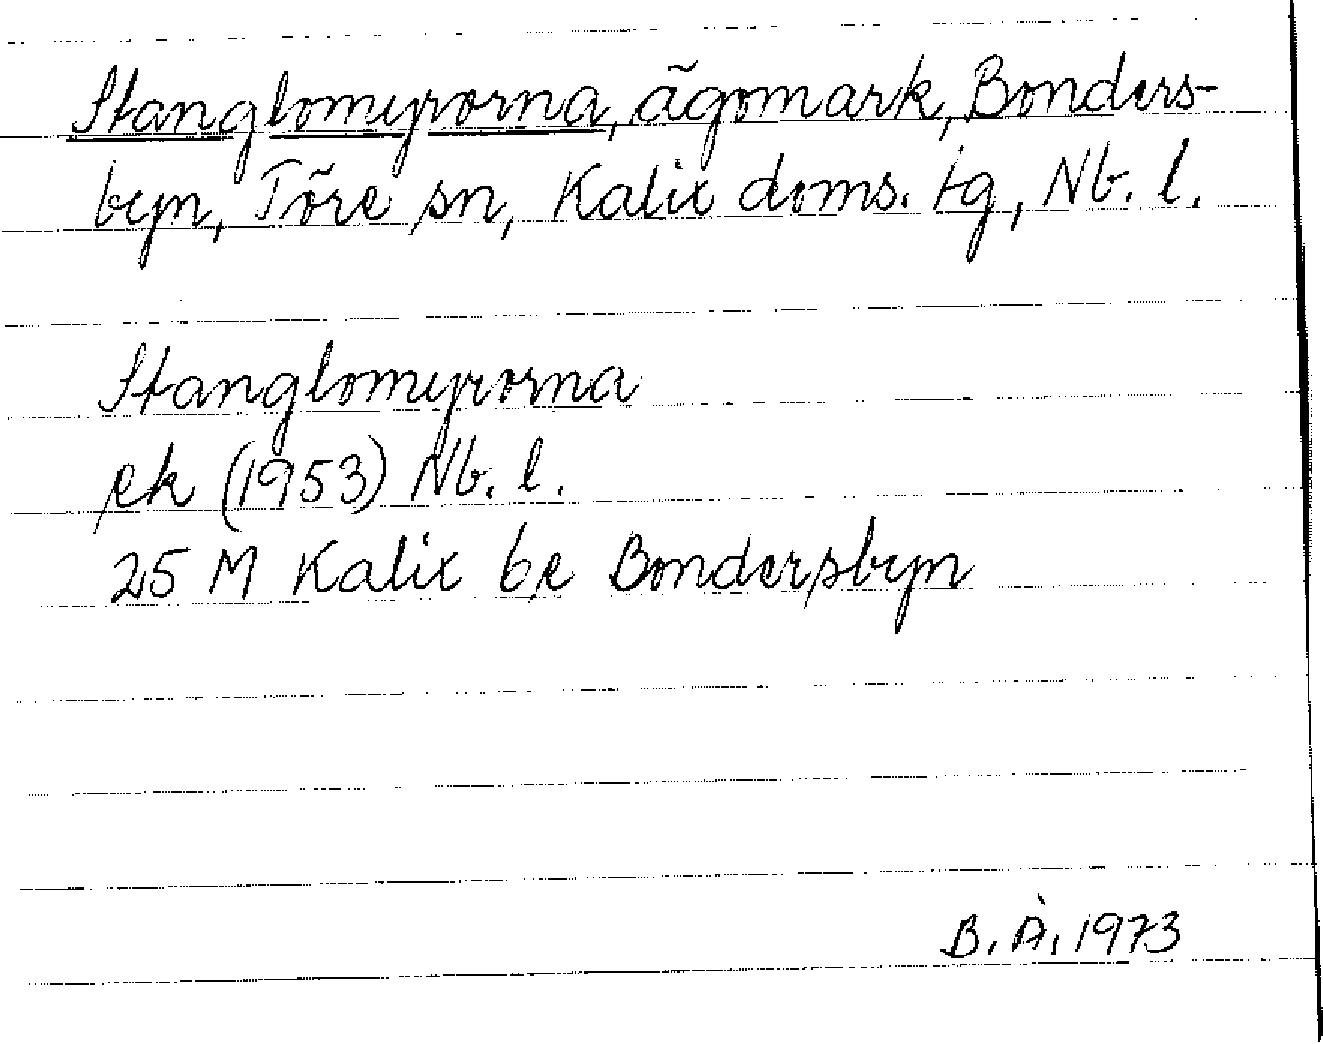 Stanglomyrorna, ägomark, Bonders-
byn, Töre sn, Kalix doms. tg, Nb. l.
Stanglomyrorna
ek (1953) Nb. l.
25 M Kalix be Bondersbyn
B. Å. 1973